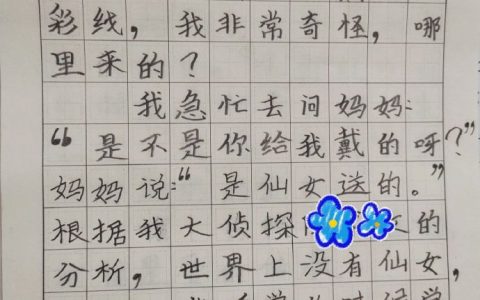 彩线，我非常奇怪，哪
里来的？
我急忙去问妈妈：
“是不是你给我戴的呀？”
妈妈说：“是仙女送的。”
根据我大侦探的
分析，世界上没有仙女，